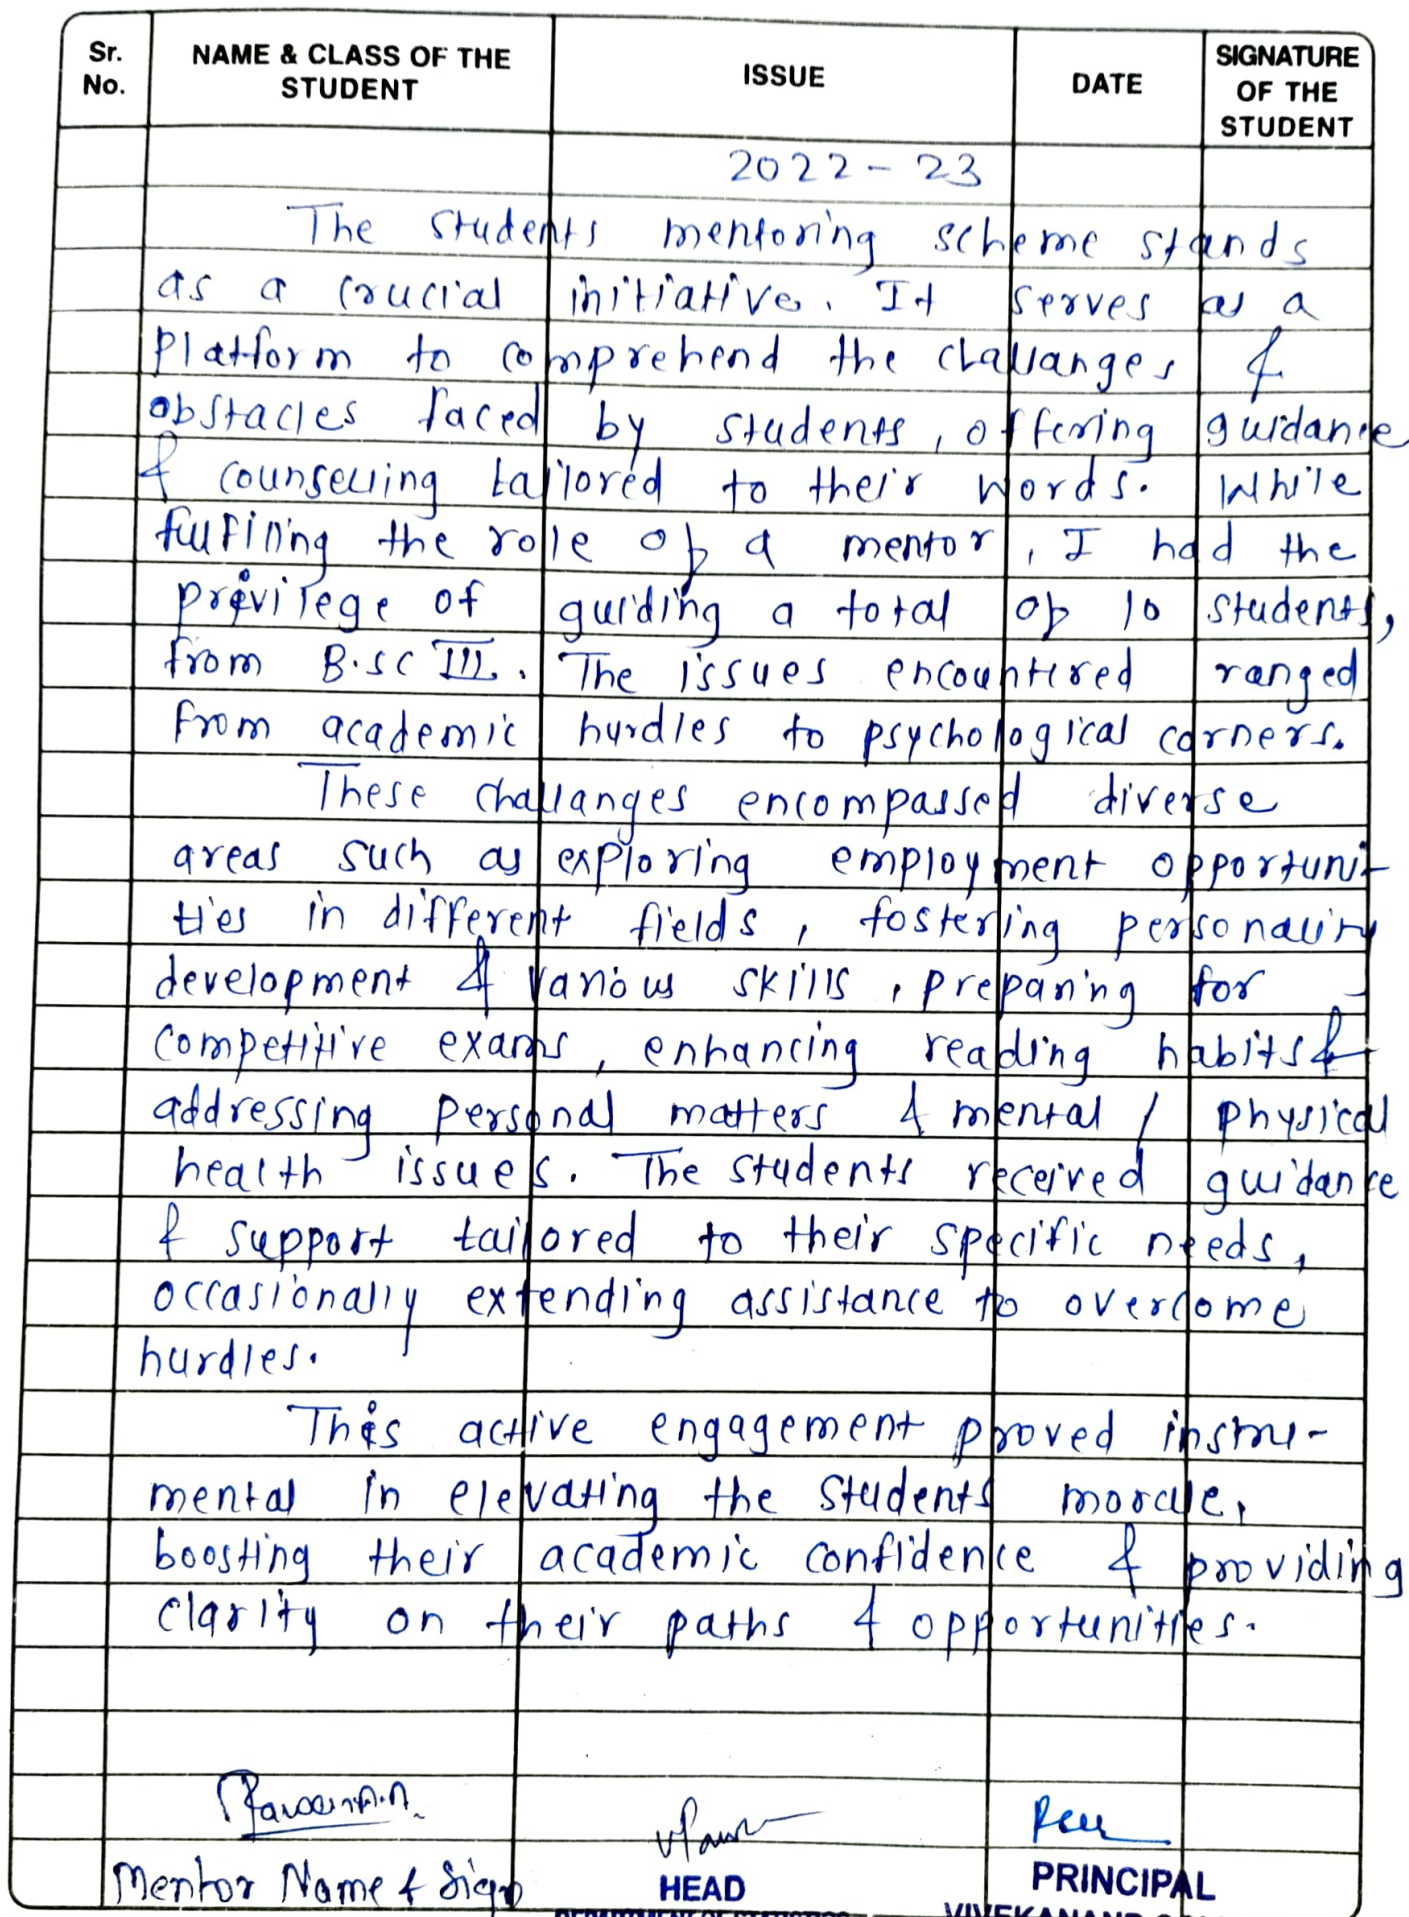 Sr. No.
NAME & CLASS OF THE STUDENT
ISSUE
DATE
SIGNATURE OF THE STUDENT
2022 - 23
The students mentoring scheme stands
as a crucial initiative. It serves as a
Platform to comprehend the challanges &
obstacles faced by students, offering guidance
& counselling tailored to their words. While
fulfilling the role of a mentor, I had the
privilege of guiding a total of 10 students,
from B.sc III. The issues encountered ranged
from academic hurdles to psychological corners.
These challanges encompassed diverse
areas such as exploring employment opportuni-
ties in different fields, fostering personality
development & various skills, preparing for
competitive exams, enhancing reading habits &
addressing personal matters & mental / physical
health issues. The students received guidance
& support tailored to their specific needs,
occasionally extending assistance to overcome
hurdles.
This active engagement proved instru-
mental in elevating the students morale,
boosting their academic confidence & providing
clarity on their paths & opportunities.
Mentor Name & Sign
HEAD
PRINCIPAL
DEPARTMENT OF STATISTICS
VIVEKANAND